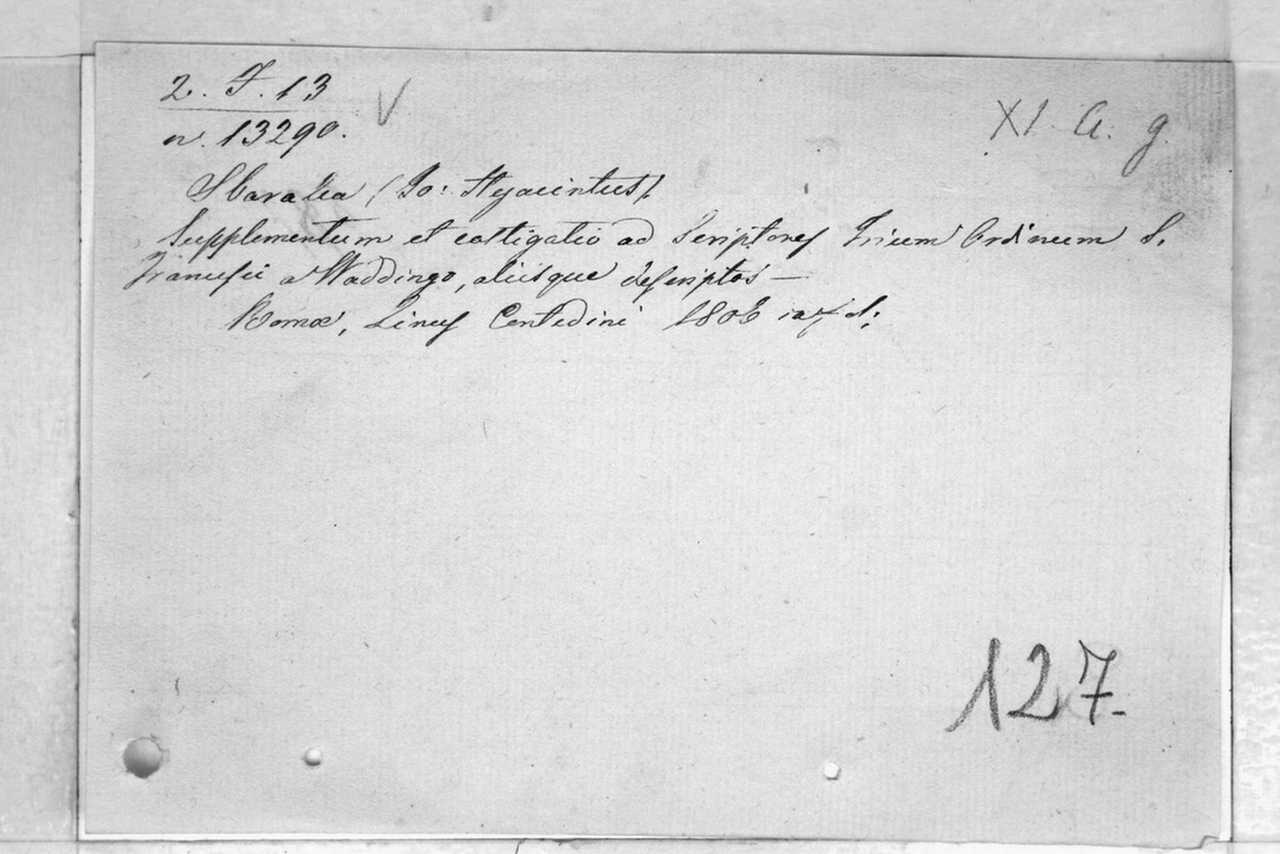 2. F. 13
n. 13290.
XI. A. g.
Sbaralea (Jo: Hyacintus).
Supplementum et castigatio ad Scriptores Trium Ordinum S.
Francisci a Waddingo, aliisque descriptos —
Romæ, Linus Contedini 1806 in f. d:
127.